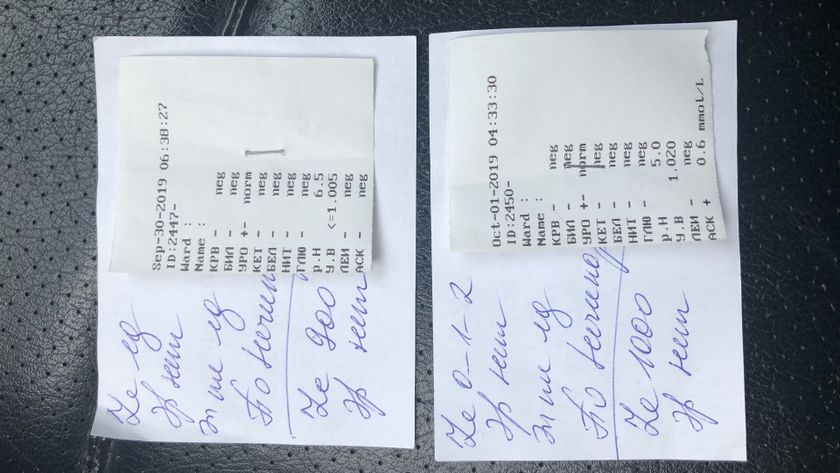 Sep-30-2019 06:38:27
ID:2447-
Ward :
Name :
КРВ - neg
БИЛ - neg
УРО +- norm
КЕТ - neg
БЕЛ - neg
НИТ - neg
ГЛЮ - neg
р.Н 6.5
У.В <=1.005
ЛЕИ - neg
АСК - neg
Ze ед
Эр нет
Эпит ед
По Нечипор
Ze 900
Эр нет
Oct-01-2019 04:33:30
ID:2450-
Ward :
Name :
КРВ - neg
БИЛ - neg
УРО +- norm
КЕТ - neg
БЕЛ - neg
НИТ - neg
ГЛЮ - neg
р.Н 5.0
У.В 1.020
ЛЕИ - neg
АСК + 0.6 mmol/L
Ze 0-1-2
Эр нет
ед
По Нечипор
Ze 1000
Эр нет